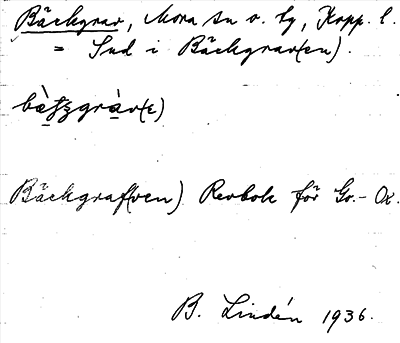 Bäckgrav, Mora sn o. tg, Kopp. l.
= Ind i Bäckgrav(en).
Bäckgraf(ven) Revbok för Gr.- Ox.
B. Lindén 1936.